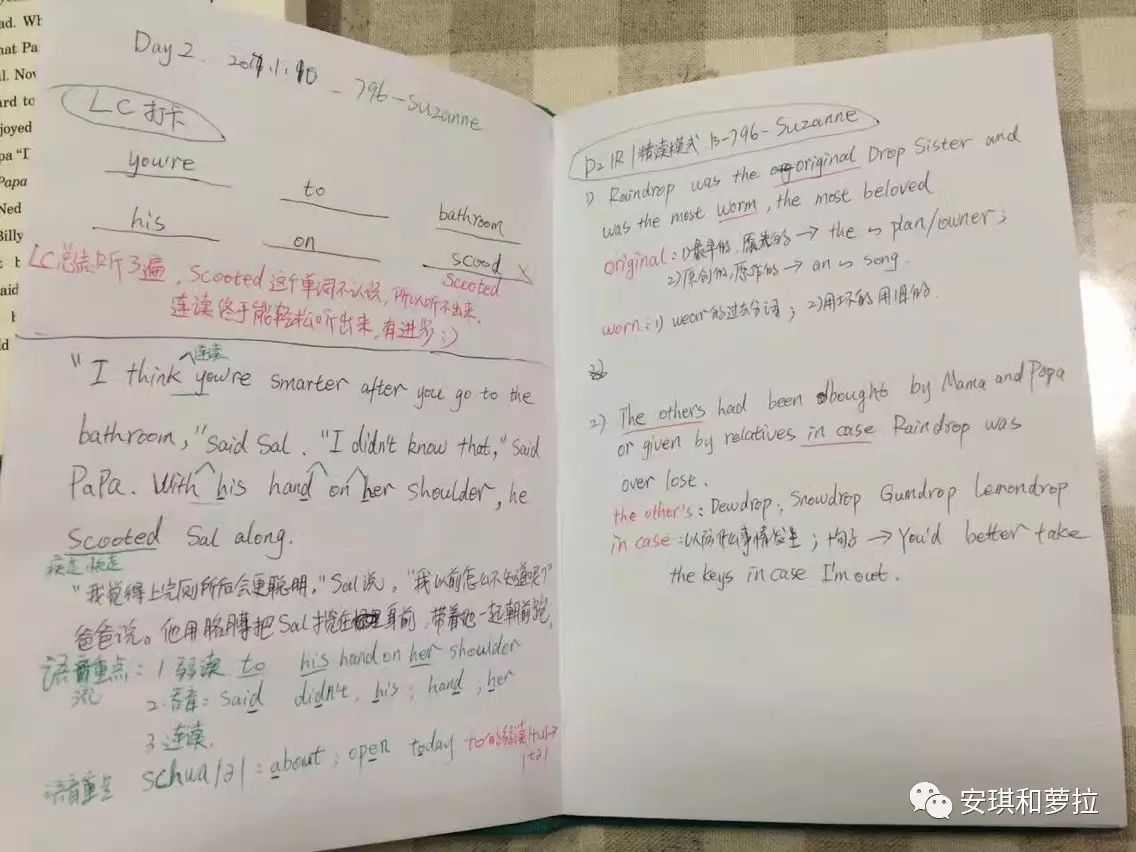 ad. Wh
hat Pa
l. Nov
ard to
joyed
pa "I
Papa
Ned
Billy
said
Day 2. 1.10 - 796 - Suzanne
LC 打卡
you're
to
bathroom
his
on
scood ×
Scooted
LC总结只听了3遍，Scooted这个单词不认识，所以听不出来.
连读终于能轻松听出来,有进步:)
连读
"I think you're smarter after you go to the
bathroom," said Sal. "I didn't know that," said
PaPa. With his hand on her shoulder, he
Scooted Sal along.
疾走 快走
"我觉得上完厕所后会更聪明," Sal说。"我以前怎么不知道呢?"
爸爸说。他用胳膊把Sal揽在身前,带着她一起朝前跑.
语音重点: 1 弱读 to his hand on her shoulder
流 2.吞音: said didn't, his; hand; her
3 连读.
语音重点 schwa |ə| = about; open today to的弱读|tu|→
|tə|
D2 IR|精读模式 B-796-Suzanne
1) Raindrop was the original Drop Sister and
was the most worm, the most beloved
original: 1)最早的,原先的 → the ~ plan/owner;
2)原创的,原作的 → an ~ song.
worn: 1) wear的过去分词; 2)用坏的用旧的.
2) The others had been bought by Mama and Papa
or given by relatives in case Raindrop was
over lost.
the other's: Dewdrop, Snowdrop Gumdrop Lemondrop
in case: 以防什么事情发生; 句子 → You'd better take
the keys in case I'm out.
安琪和萝拉